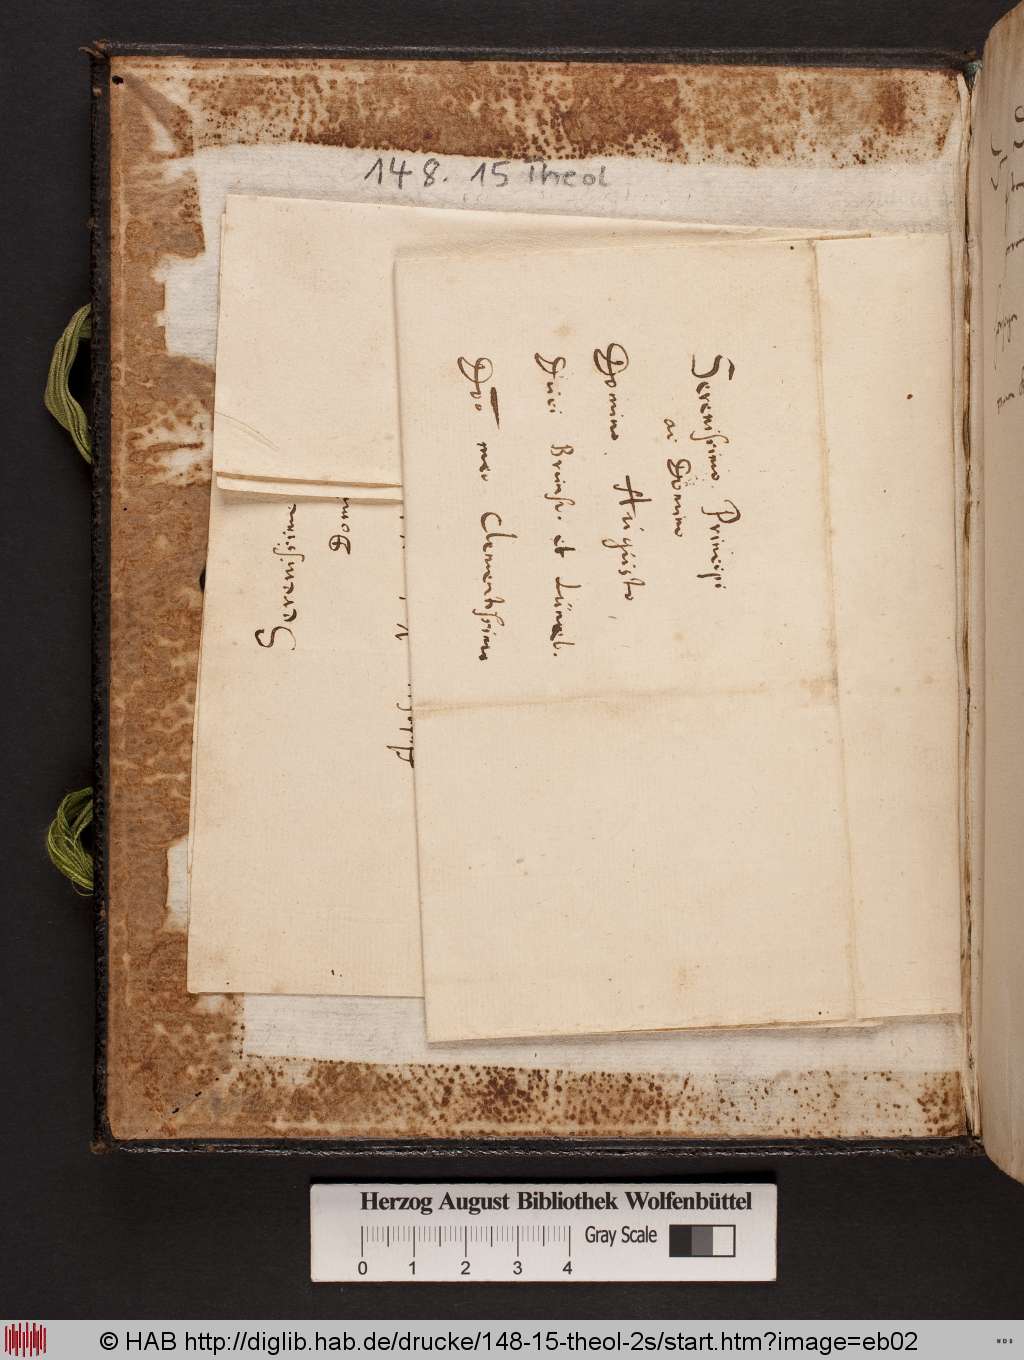 148. 15 Theol
Serenissimo Principi
ac Domino
Domino. Augusto
Duci Brunss. et Lüneb.
Dno meo Clementissimo
Serenissime
Dom
Herzog August Bibliothek Wolfenbüttel
0 1 2 3 4
Gray Scale
© HAB http://diglib.hab.de/drucke/148-15-theol-2s/start.htm?image=eb02